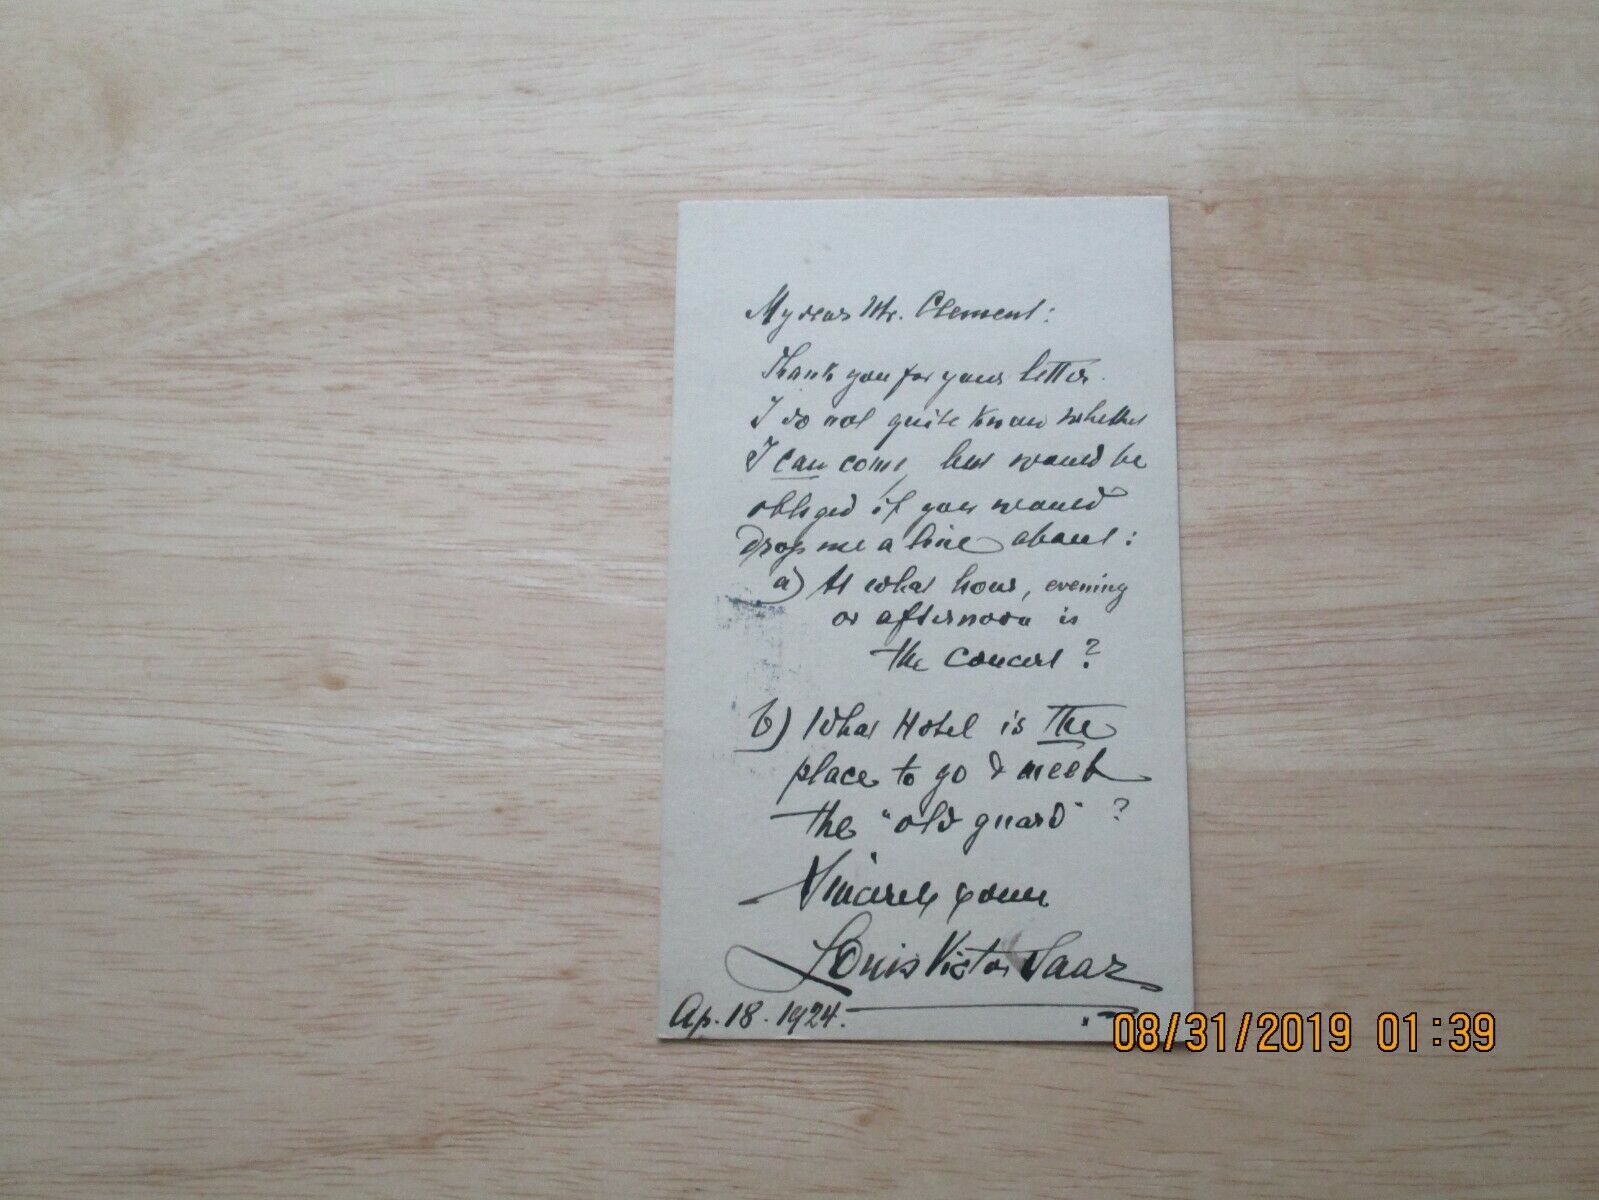 My dear Mr. Clement:
Thank you for your letter.
I do not quite know whether
I can come, but would be
obliged if you would
drop me a line about:
a) At what hour, evening
or afternoon is
the concert?
b) What Hotel is the
place to go & meet
the "old guard"?
Sincerely yours
Louis Victor Saar
Ap. 18. 1924.
08/31/2019 01:39